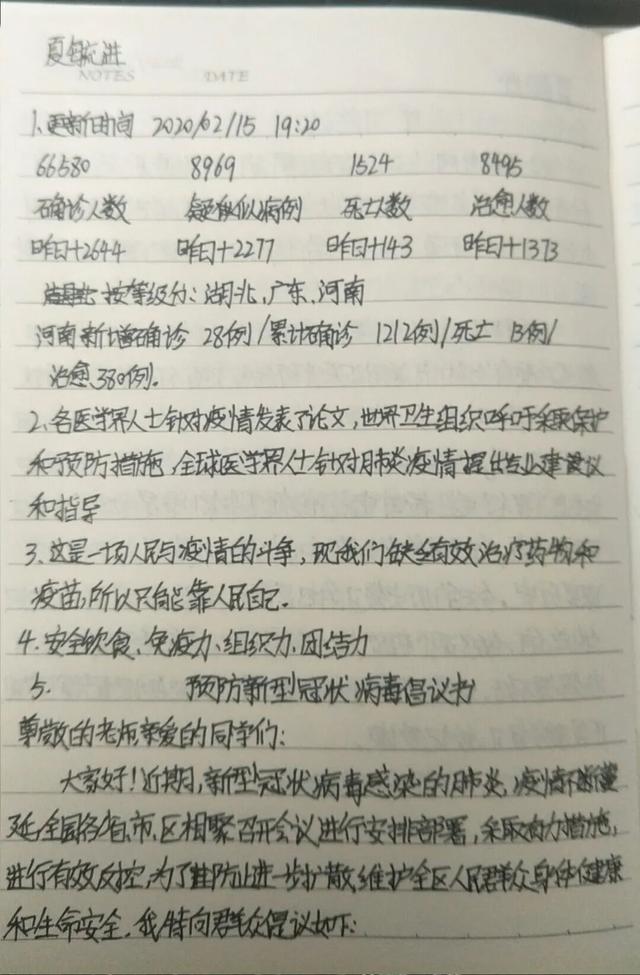 NOTES DATE
1.更新时间 2020/02/15 19:20
66580 8969 1524 8495
确诊人数 疑似病例 死亡人数 治愈人数
昨日+2644 昨日+2277 昨日+143 昨日+1373
按等级分:湖北,广东,河南
河南新增确诊 28例/累计确诊 1212例/死亡 13例/
治愈380例.
2.各医学界人士针对疫情发表了论文,世界卫生组织呼吁采取保护
和预防措施,全球医学界人士针对肺炎疫情提出专业建议
和指导
3.这是一场人民与疫情的斗争,现我们缺乏有效治疗药物和
疫苗,所以只能靠人民自己.
4.安全饮食、免疫力、组织力、团结力
5. 预防新型冠状病毒倡议书
尊敬的老师亲爱的同学们:
大家好!近期,新型冠状病毒感染的肺炎,疫情不断蔓
延,全国各省、市、区相聚召开会议进行安排部署,采取有力措施,
进行有效反控,为了防止进一步扩散,维护全区人民群众身体健康
和生命安全.我特向群众倡议如下: